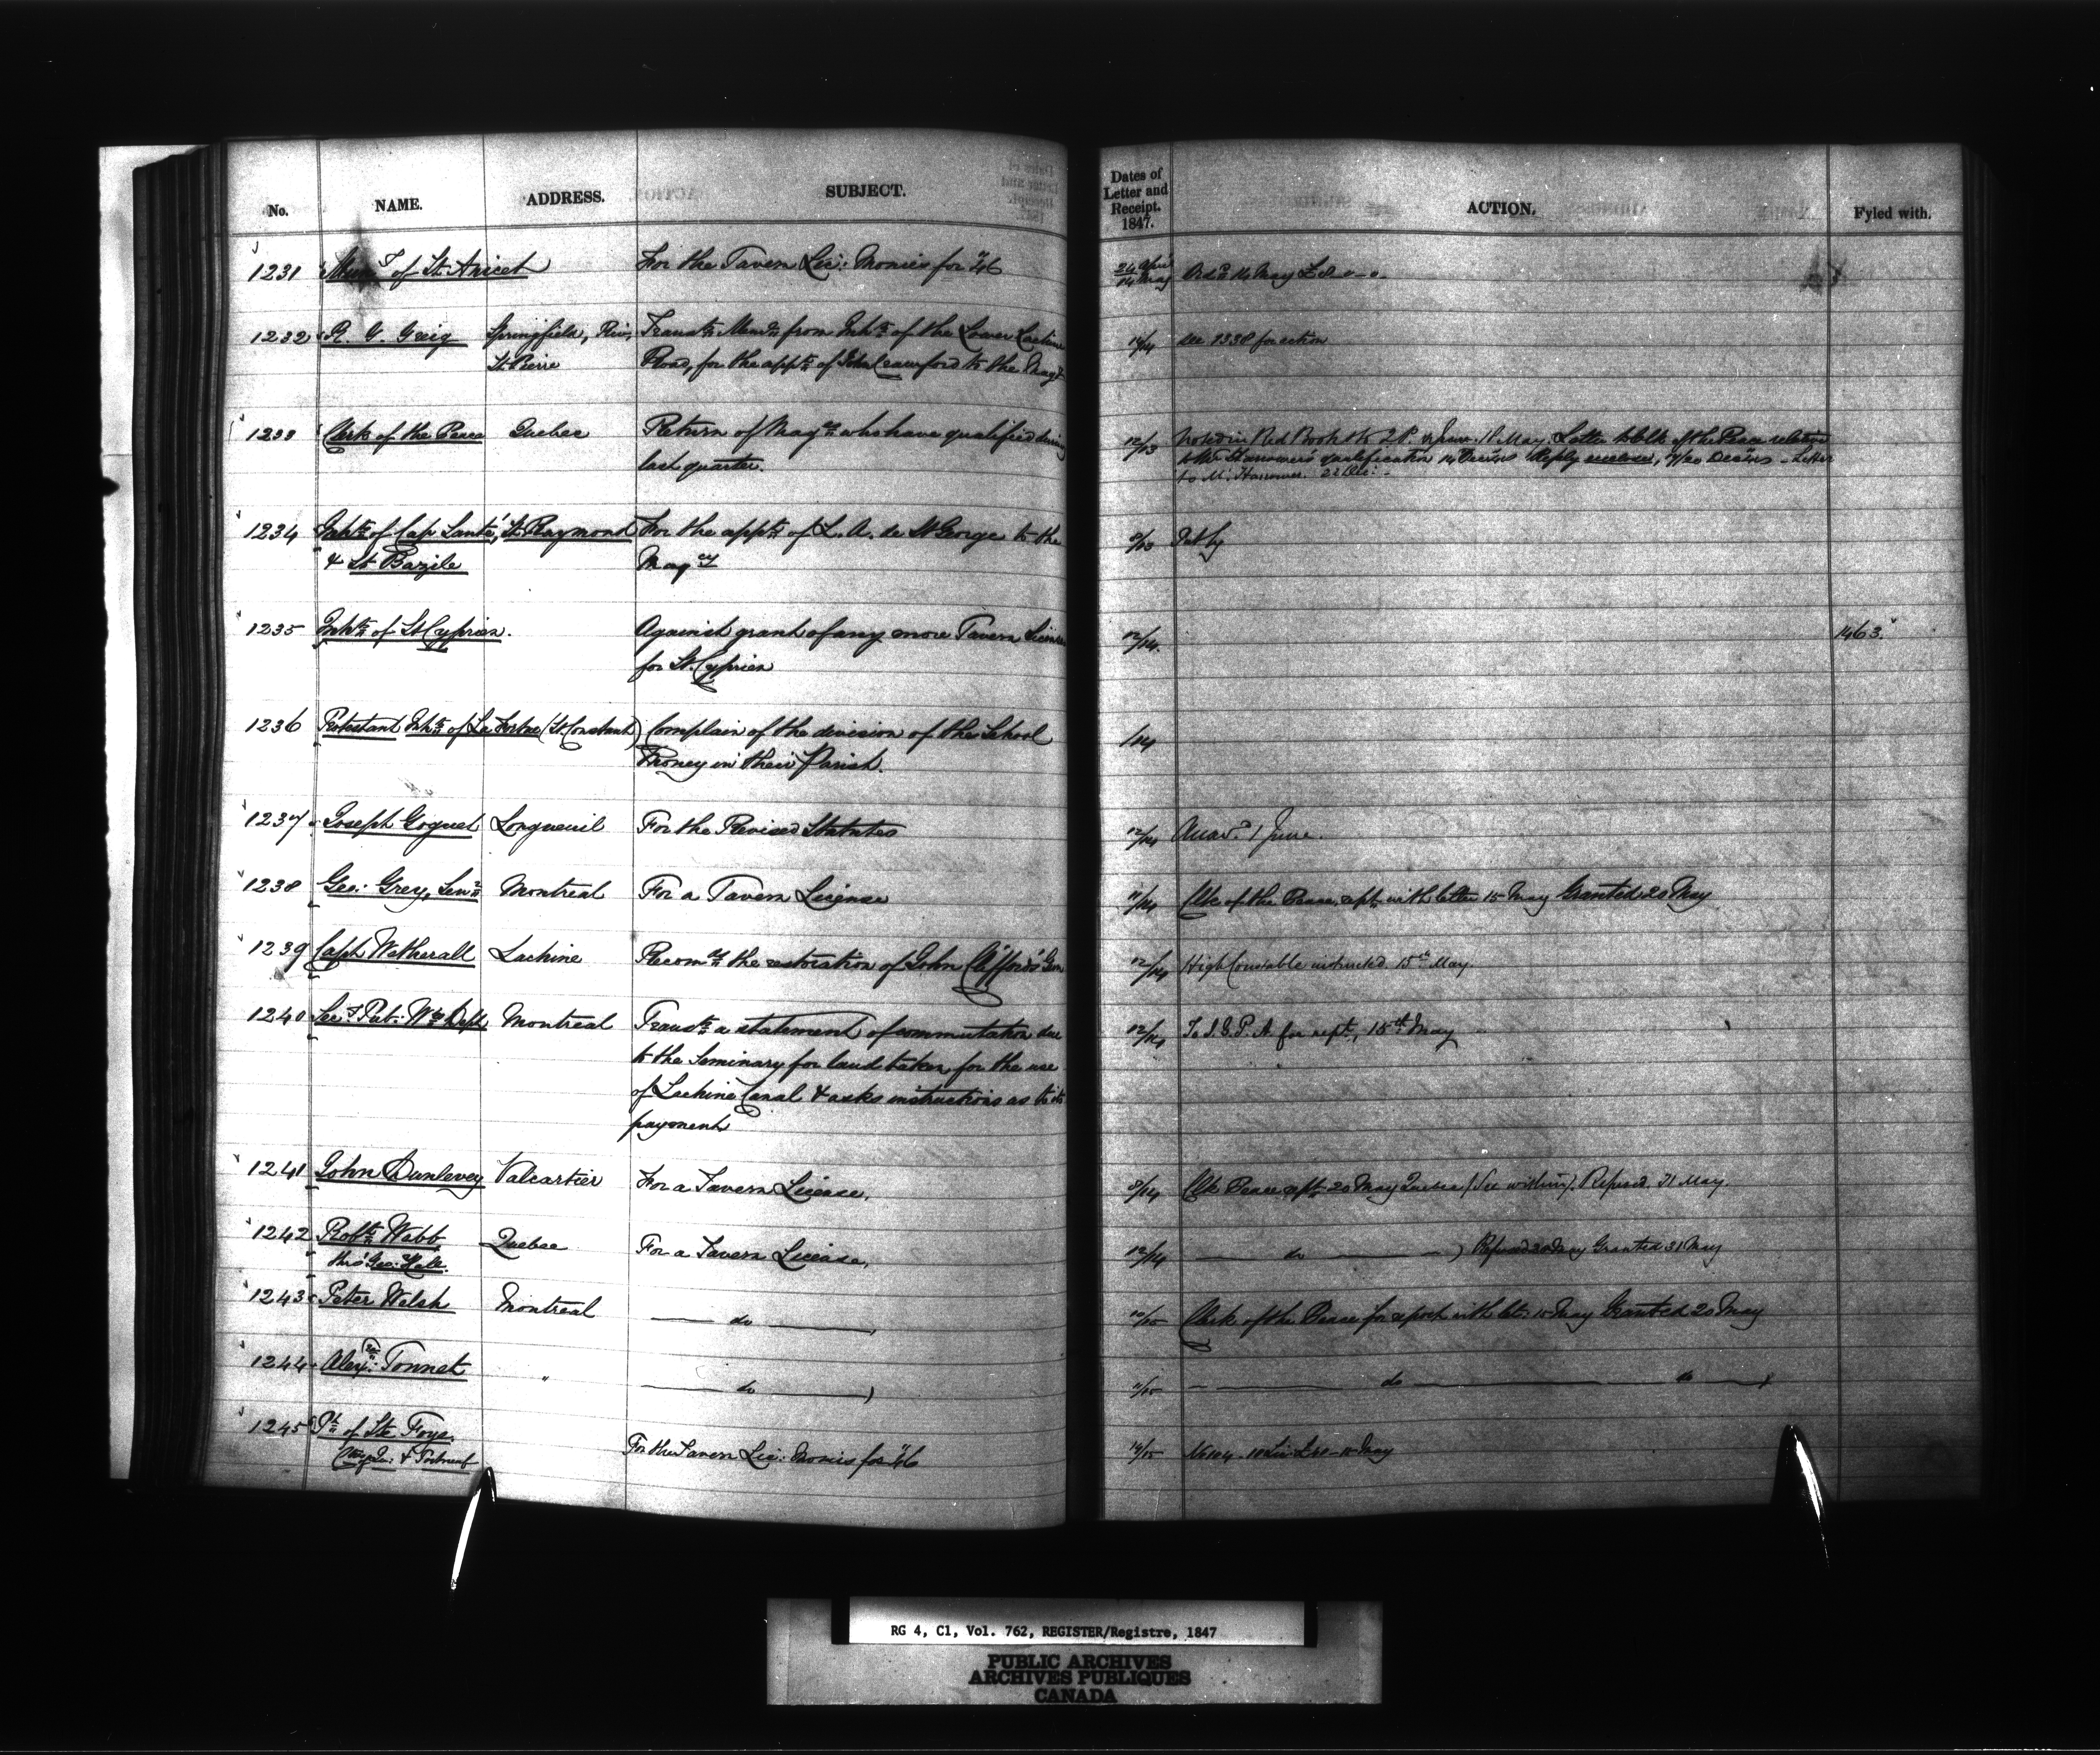 No. NAME. ADDRESS. SUBJECT. Dates of Letter and Receipt. 1847. ACTION. Fyled with.
1231 Mun^y of St. Anicet For the Tavern Lic: Monies for "46 24 April / 14 May 14 May £8 " - " -
1232 R. G. Greig Springfield, Riv, Transts. Meml. from Inhts. of the Lower Lachine /14 See 1338 for action
St. Pierre Road, for the appt. of John Crawford to the Magy
1233 Clerk of the Peace Quebec Return of Magtes who have qualified during 12/13 Noted in Red Book 18 May. Letter to Clk of the Peace relative
last quarter. to Mr. Hanower's qualification 14 Reply - Letter
to Mr. Hanower. 22 Dec: -
1234 Inhts. of Cap Santé, St. Raymond For the appt. of L. A. de St George to the 8/13 Put by
& St. Bazile Magcy
1235 Inhts. of St. Cyprien. Against grant of any more Tavern Licenses 12/14. 1463.
for St. Cyprien
1236 Protestant Inhts. of La Tortue (St. Constant) Complain of the division of the School /14
Money in their Parish.
1237 Joseph Goguet Longueuil For the Revised Statutes 12/14 Answd. 1 June.
1238 Geo: Grey, Senr. Montreal For a Tavern License 11/14 Clk of the Peace, rept. with letter 15 May Granted 20 May
1239 Capt. Wetherall Lachine Recomds. the restoration of John Clifford's Gun 12/14 High Constable instructed. 15th May.
1240 Secy. Pub: Wks Dept Montreal Transts. a statement of commutation due 12/14 To I. G. P. A. for rept., 15th May
to the Seminary for land taken for the use
of Lachine Canal & asks instructions as to its
payment
1241 John Dunlevey Valcartier For a Tavern License, 8/14 Clk Peace rept. 20 May Quebec (See within). Refused. 31 May.
1242 Robt. Webb Quebec For a Tavern License, 12/14 — do — ) Refused 20 May Granted 31 May
thro' Geo: Hall.
1243 Peter Welsh Montreal — do —, 10/15 Clerk of the Peace for report with let. 15 May Granted 20 May
1244 Alexr: Tonnet " — do —) 11/15 — do — do —
1245 Ph. of Ste. Foye. For the Tavern Lic: Monies for "46 14/15 No 104 - 10 Lic £40 - 15 May
Cty Qu: & Portneuf
RG 4, C1, Vol. 762, REGISTER/Registre, 1847
PUBLIC ARCHIVES
ARCHIVES PUBLIQUES
CANADA